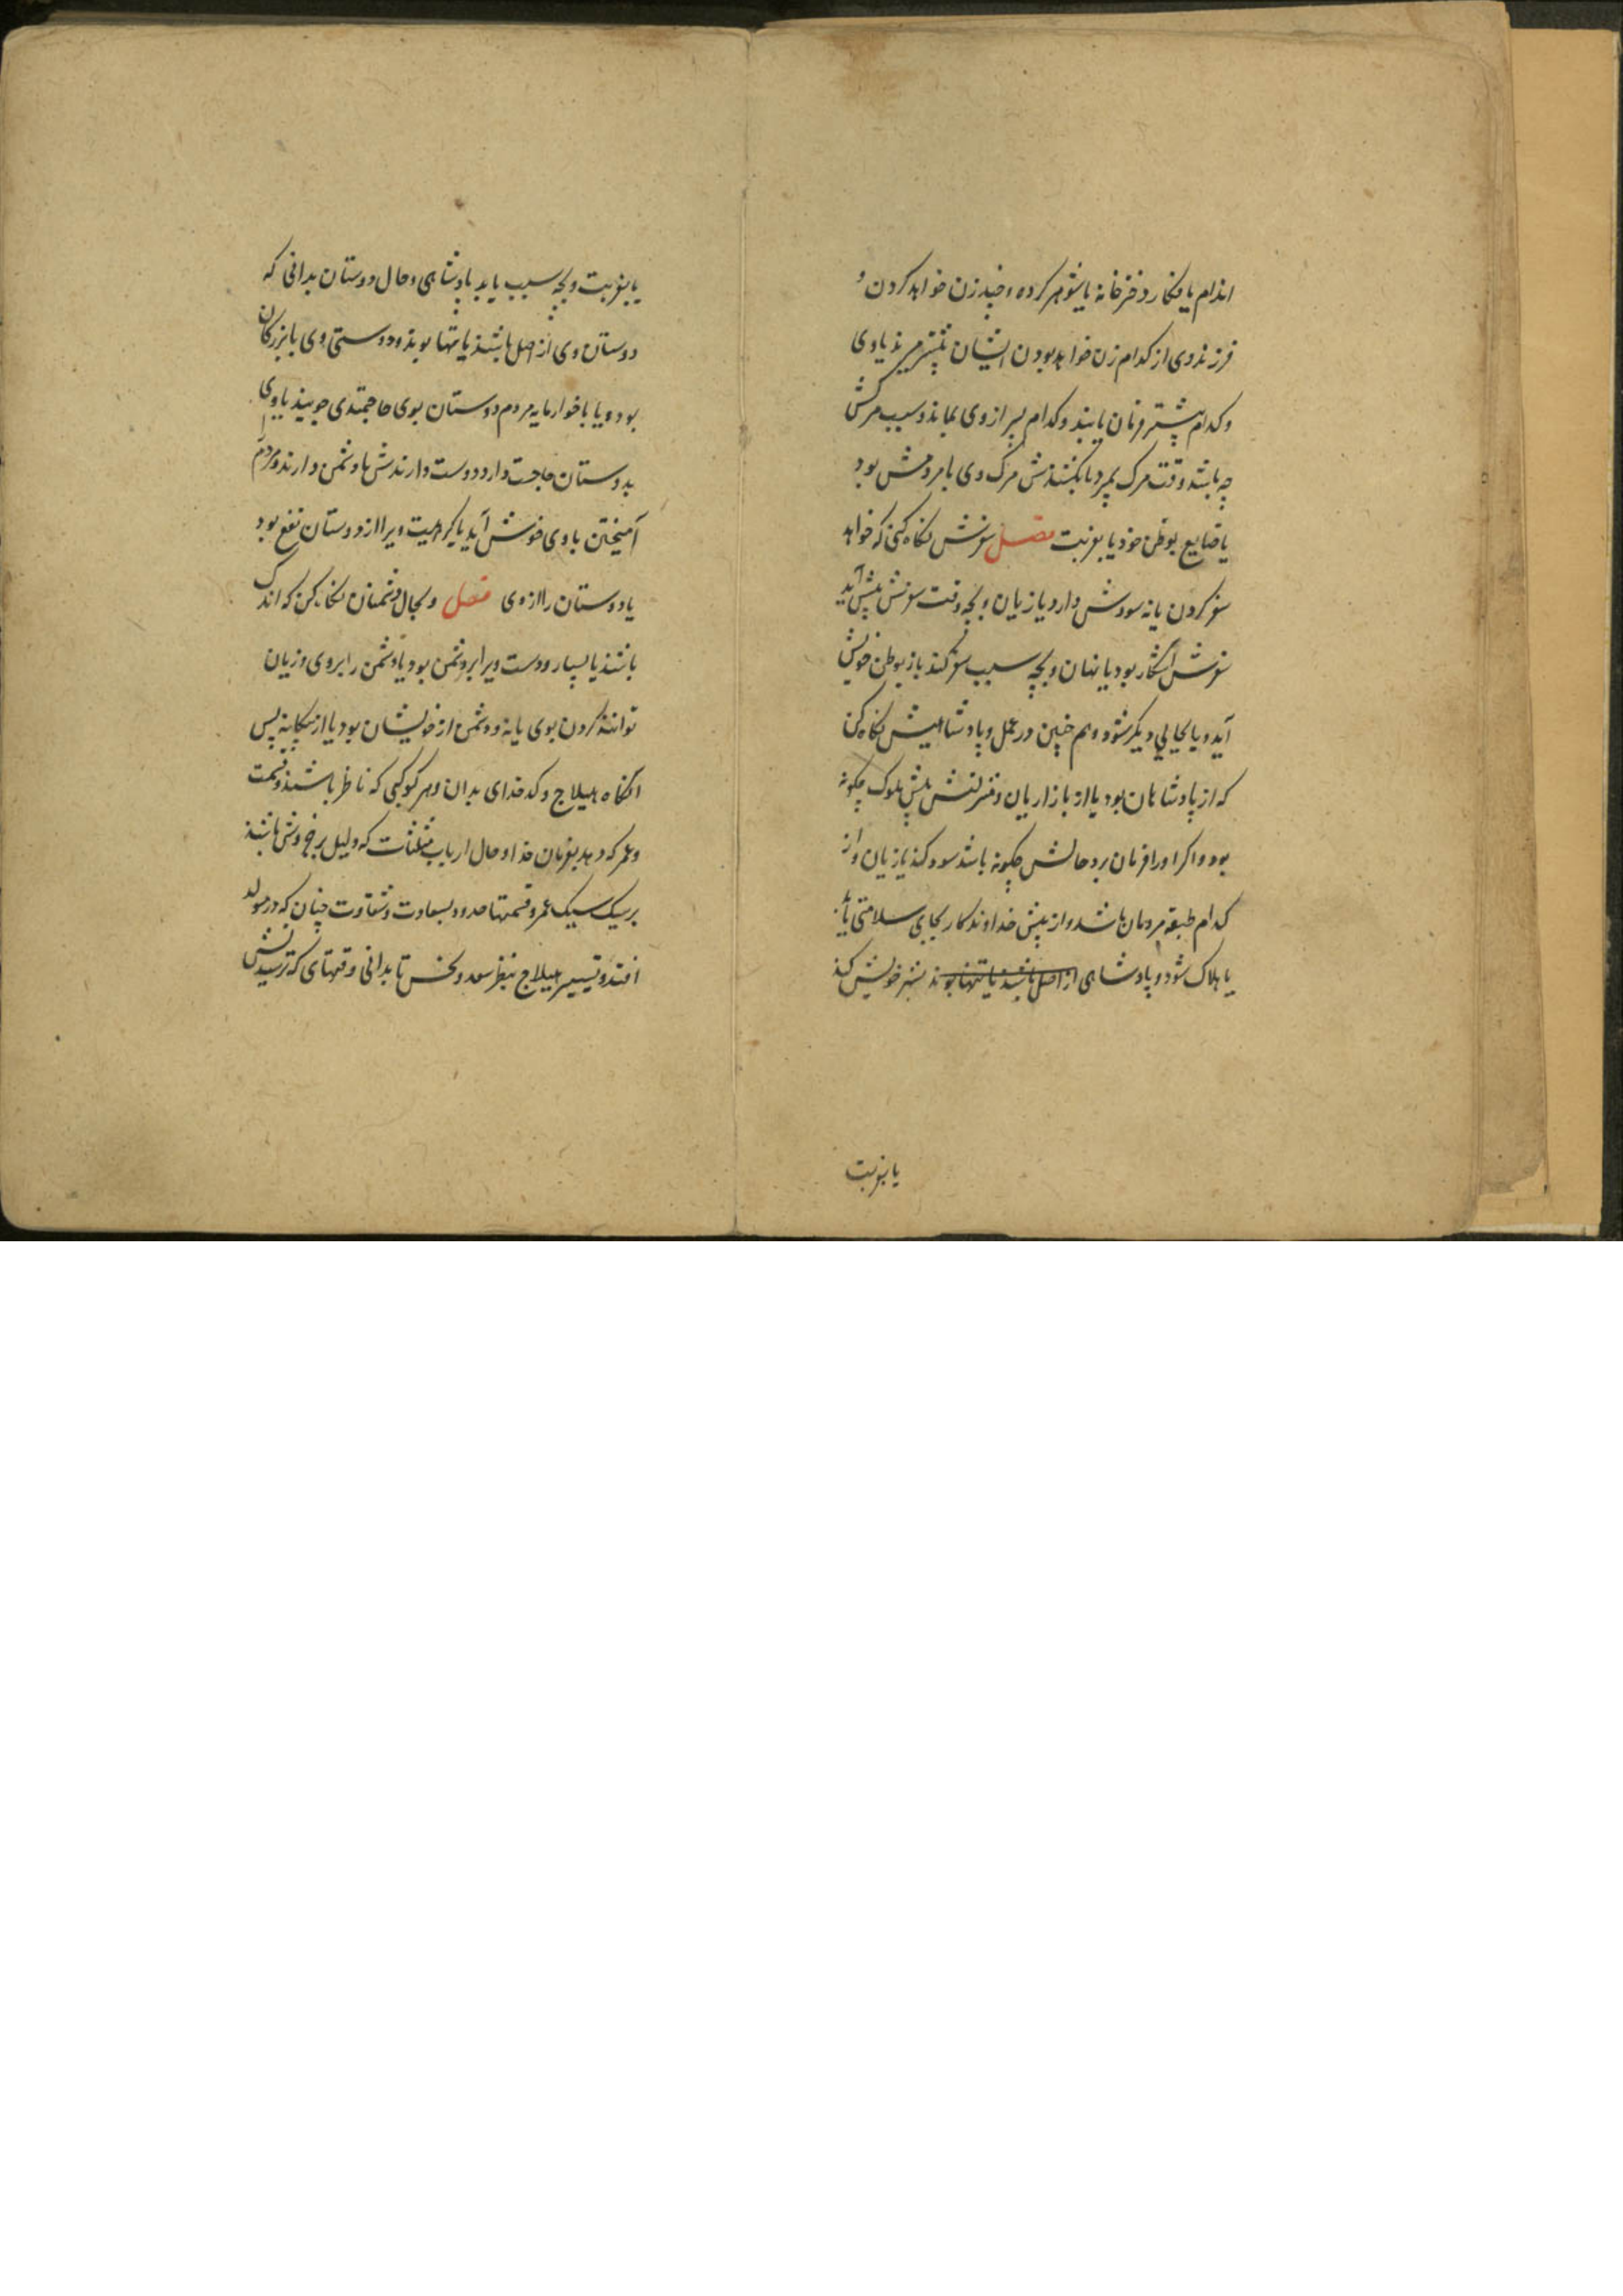 اندام یا فکار دخترخانه یا شوهر کرده و چند زن خواهد کردن و
فرزند وی از کدام زن خواهد بودن ایشان پیشتر میرند یا وی
و کدام پیشتر فرمان یابند و کدام پسر از وی بماند و سبب مرگش
چه باشد وقت مرگ بمیرد یا بکشندش مرگ وی با مردمش بود
یا ضایع بوطن خود یا بغربت فصل سفرش نگاه کنی که خواهد
سفر کردن یا نه سودش دارد یا زیان و بچه وقت سفرش پیش آید
سفرش آشکار بود یا نهان و بچه سبب سفر کند باز بوطن خویش
آید و یا بجایی دیگر شود و هم چنین در عمل و پادشاهیش نگاه کن
که از پادشاهان بود یا از بازاریان و منزلتش پیش ملوک چگونه
بود و اگر او را فرمان برد حالش چگونه باشد سود کند یا زیان و از
کدام طبقه مردمان باشد و از پیش خداوند کار بجای سلامتی یابد
یا هلاک شود و پادشاهی از اصل باشند یا تنها بوند بشهر خویش کند
یا بغربت
یا بغربت و بچه سبب یابد پادشاهی و حال دوستان بدانی که
دوستان وی از اصل باشند یا تنها بوند و دوستی وی با بزرگان
بود و یا با خوارمایه مردم دوستان بوی حاجتمندی جویند یا وی
بدوستان حاجت دارد دوست دارندش یا دشمن دارند و مردم
آمیختن با وی خوش آید یا کراهیت ویرا از دوستان نفع بود
یا دوستان را از وی فصل و بحال دشمنان نگاه کن که اندک
باشند یا بسیار و دست ویرا بر دشمن بود یا دشمن را بر وی و زیان
توانند کردن بوی یا نه و دشمن از خویشان بود یا از بیگانه پس
آنگاه هیلاج و کدخدای بدان و هر کوکبی که ناظر باشند و قسمت
و عمر که دهد بفرمان خدا و حال ارباب مثلثات که دلیل برخ و نش باشند
بر سیک سیک عمر و قسمتها حدود بسعادت و شقاوت چنان که در مولد
افتد و تسییر هیلاج بنظر سعد و نحس تا بدانی وقتهای که ترسیدنش